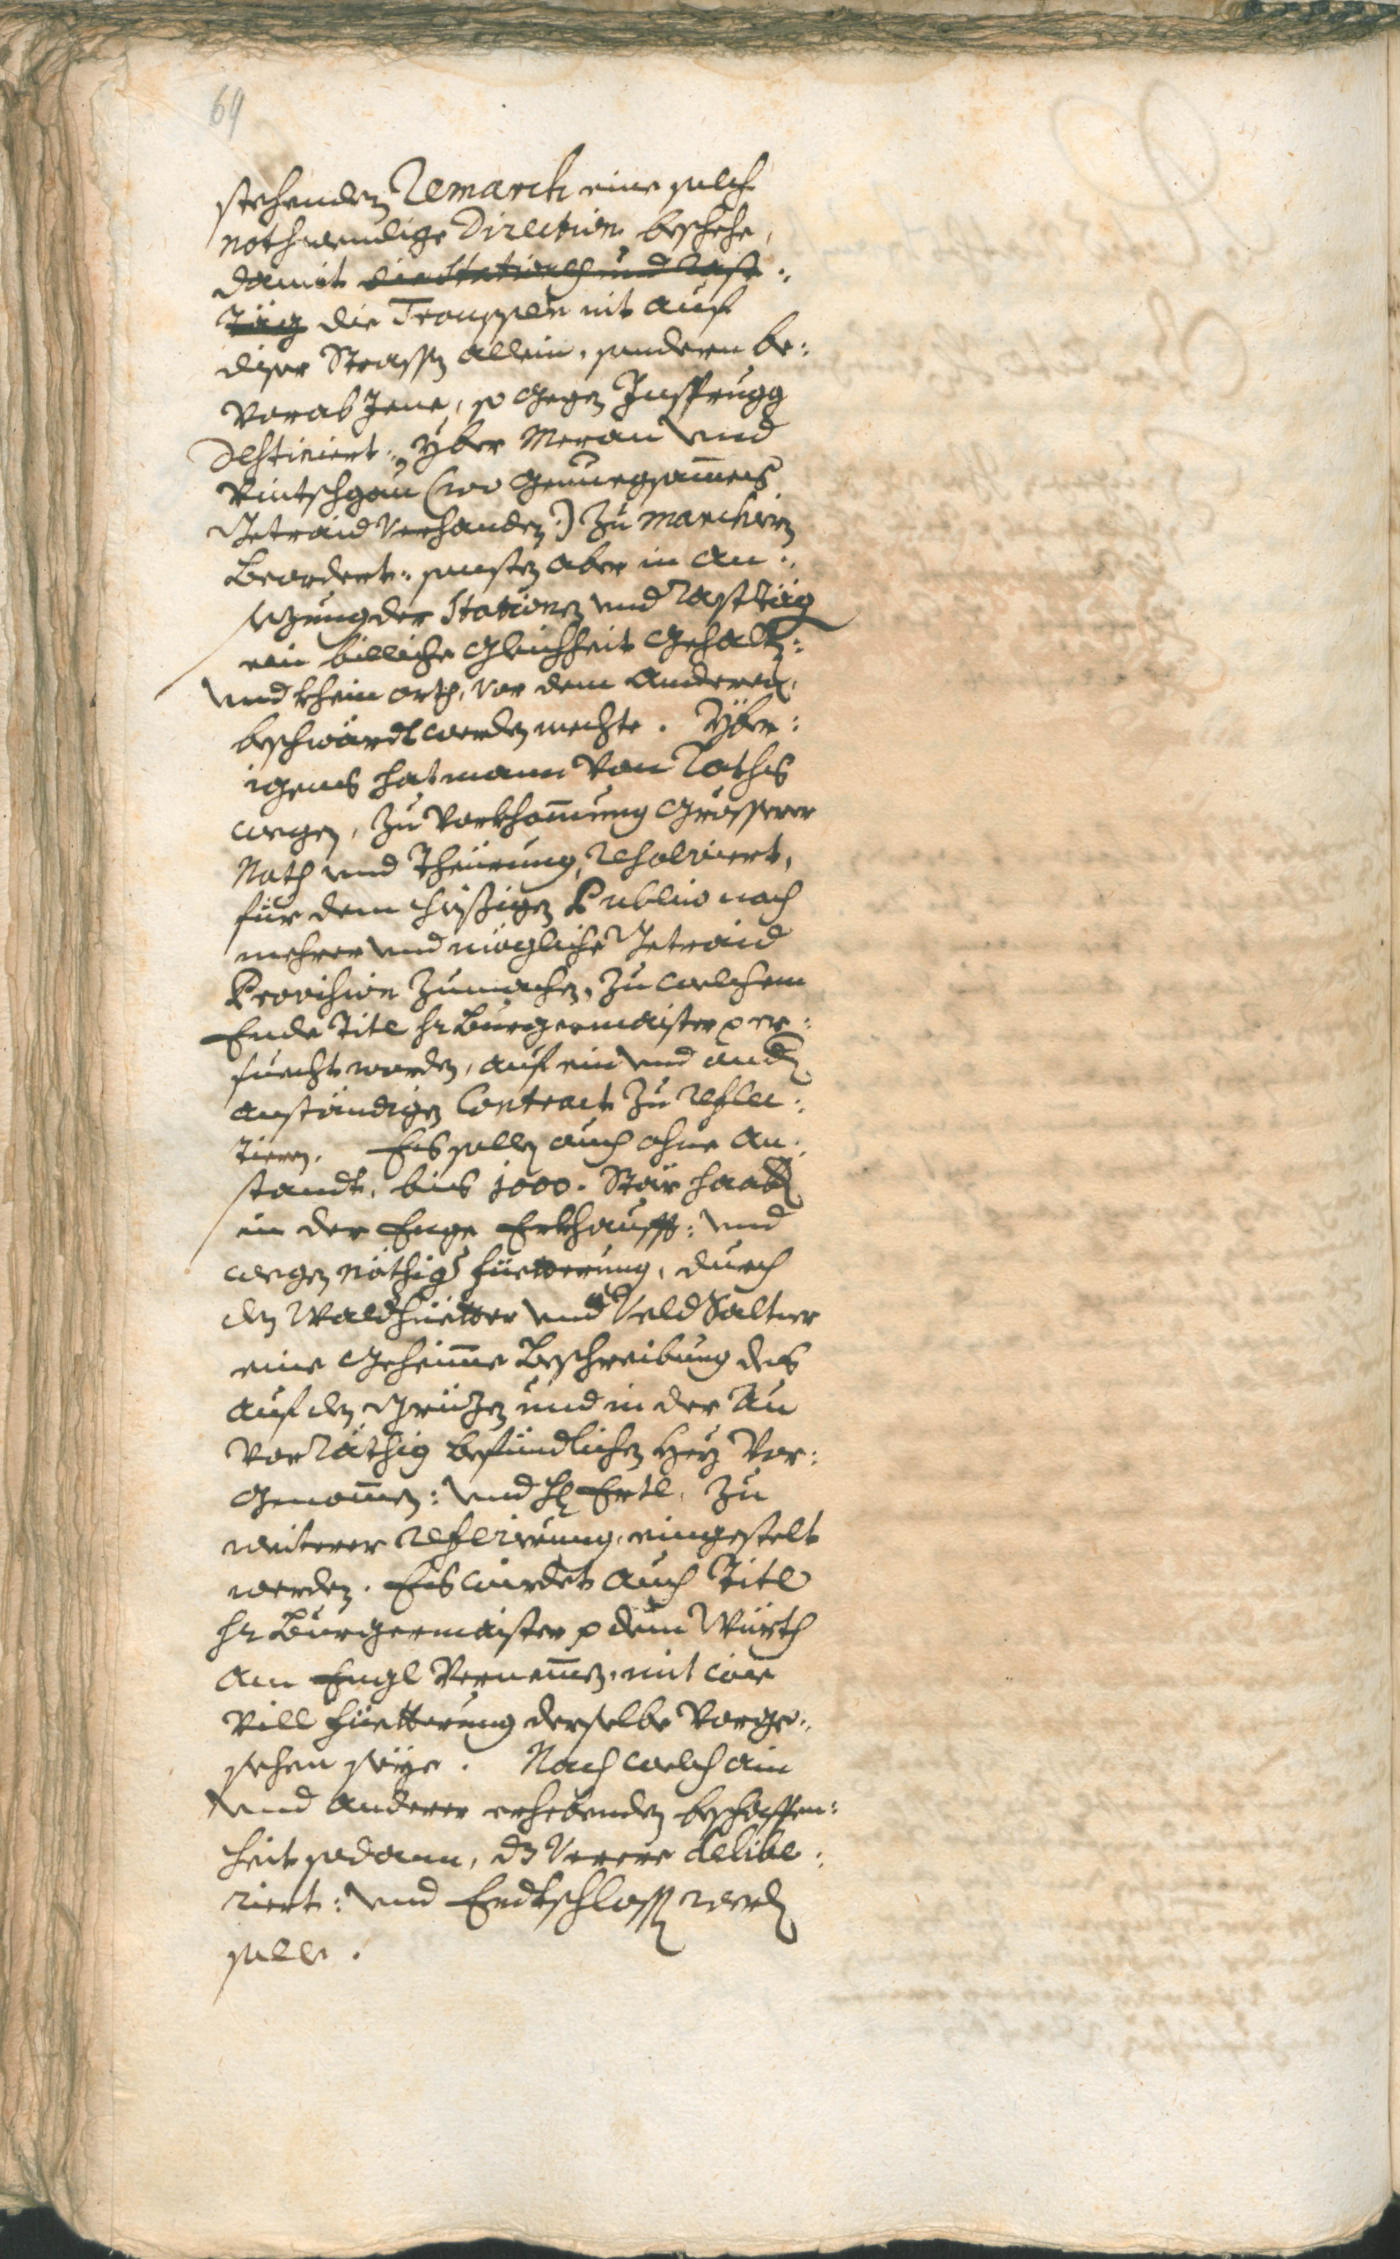 69
stehenden Remarch eine solch
nothwendige Direction beschehe,
damit die Stationen und Rast:
täg die Trouppen nit auf
diser Strassen allein, sondern be:
vorab Jene, so gegen Insprugg
destiniert, yber Meran und
Vintschgau (wo genuegsammes
Getraid verhanden) zu marchiern
beordert: sonsten aber in An:
sezung der Stationen und Rasttäg
ein billiche Gleichheit gehalten:
und khein orth, vor dem Anderen,
beschwärdt werden mechte. Yber:
igens hat mann von Raths
wegen, zu Vorkhommung grösserer
Noth und Theürung, resolviert,
für dem hießigen Publico noch
mehrer und mögliche Getraid
Provision zumachen, zu welchem
Ende Titl Hr Burgermaister p er:
suecht worden, auf ein und andern
anständigen Contract zu reflec:
tieren. Es sollen auch ohne An:
standt, bis 1000. Stär Haabern
in der Enge Erkhaufft: und
wegen nöthiger Füetterung, durch
den Waldhüetter und Veld Saltner
eine geheimme Beschreibung des
auf den Grüzen und in der Au
vorräthig befündlichen Hey vor:
genommen: und H Ertl, zu
weiterer reflexierung, eingestelt
werden. Es würdet auch Titl
Hr Burgermaister p dem Würth
am Engl vernemmen, mit wie
vill Füetterung derselbe vorge:
sehen seye. Nach welch ain
und anderer erhebenden beschaffen:
heit sodann, dz verere delibe:
riert: und Endtschlossen werden
solle.